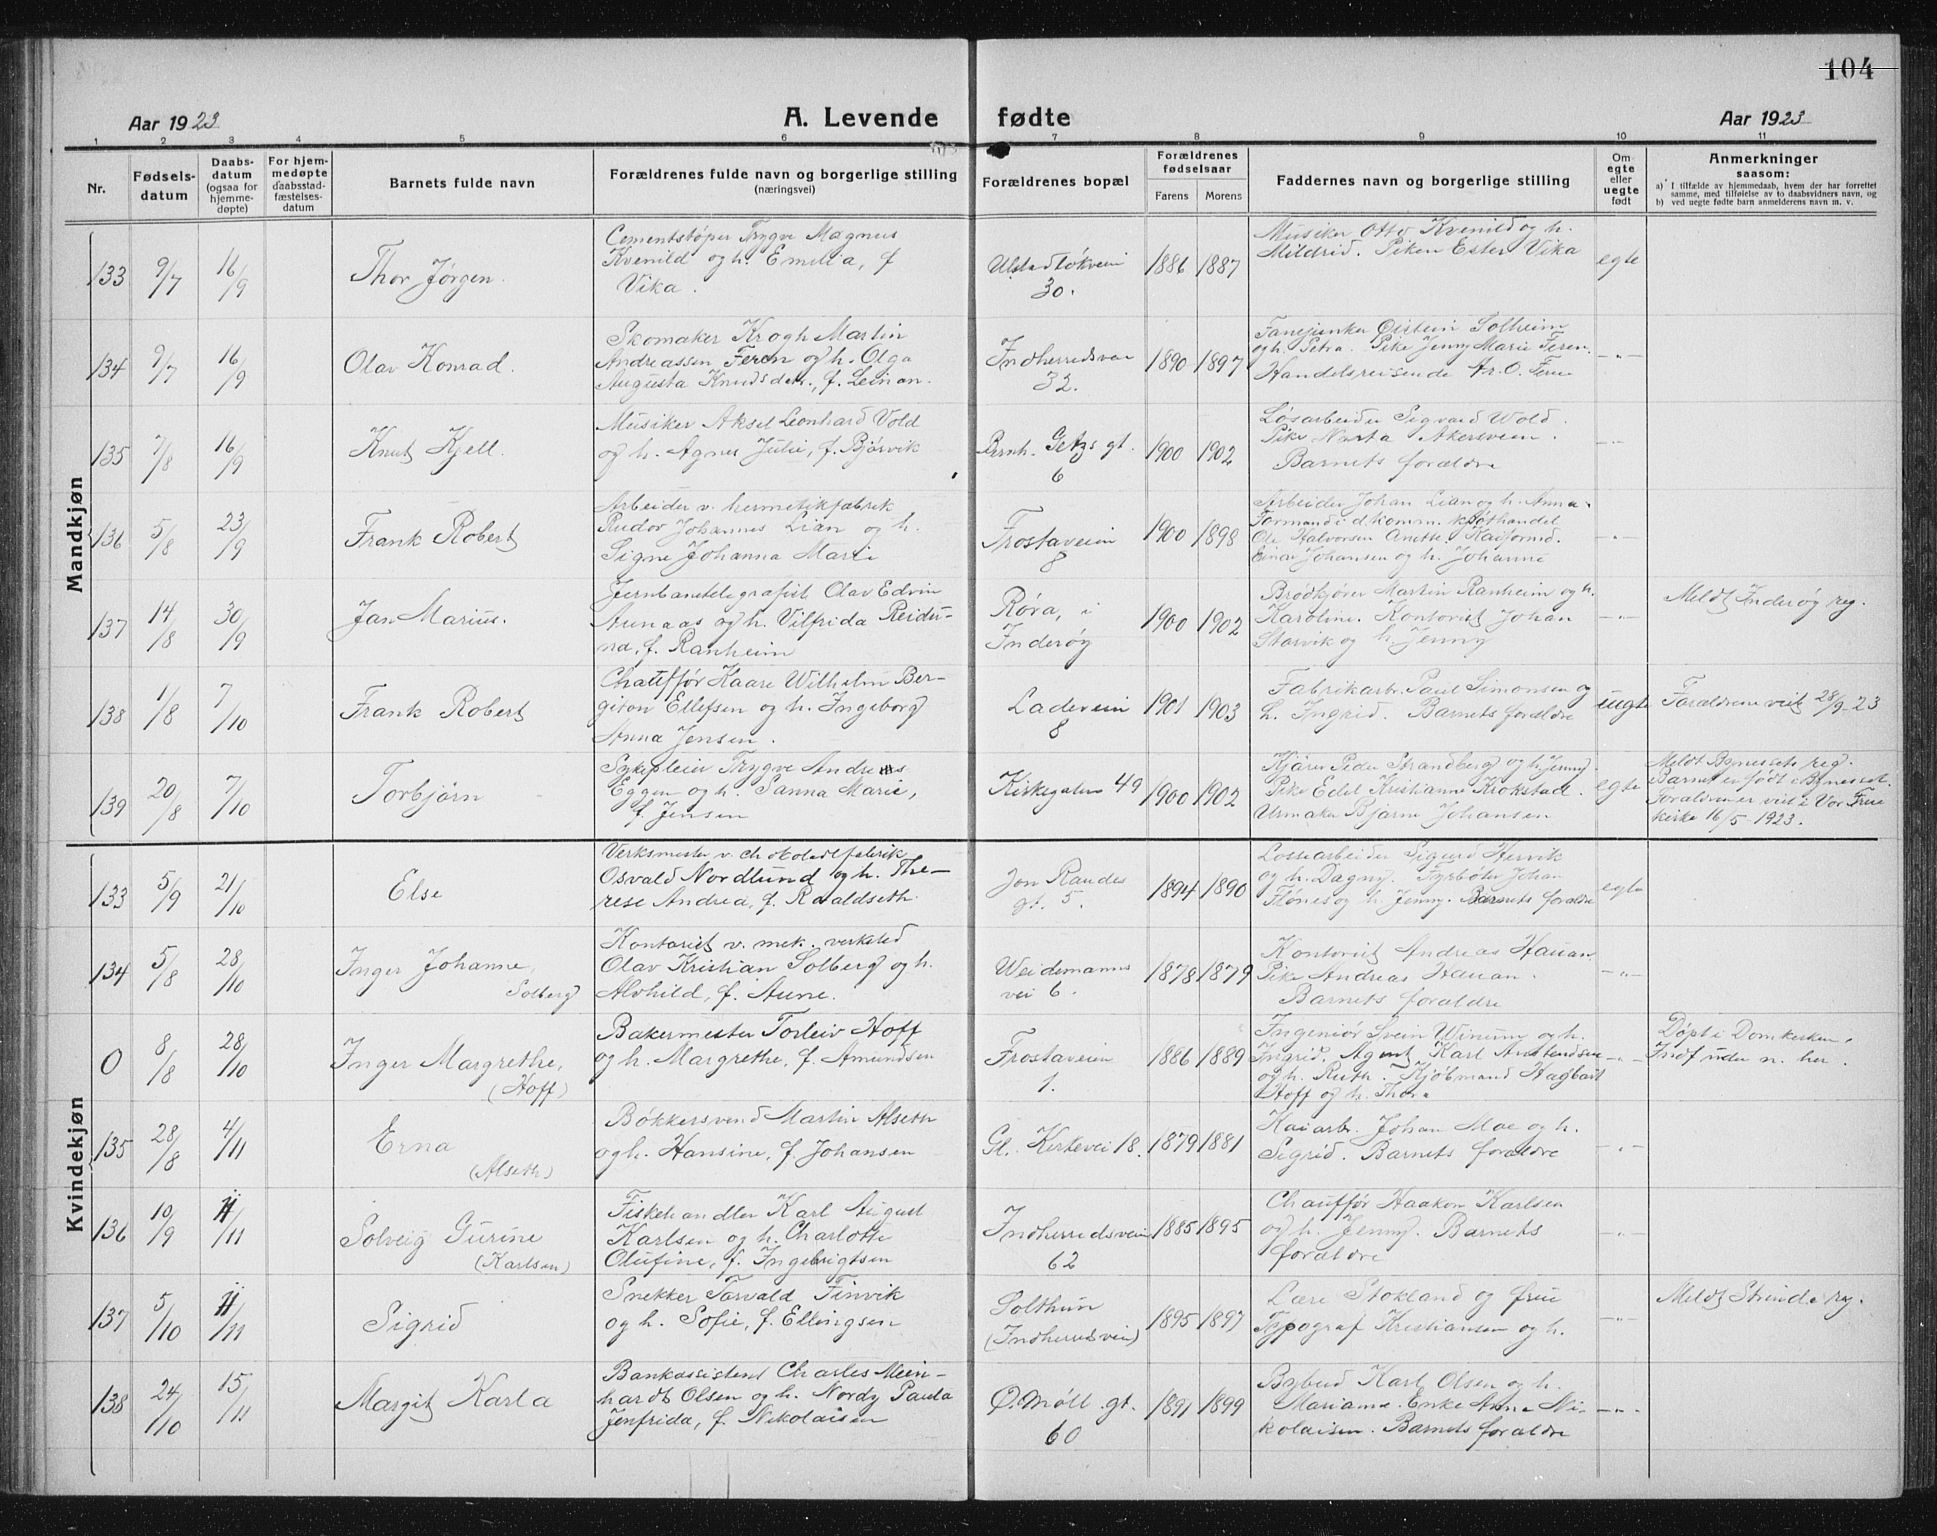 104
Aar 1923
A. Levende fødte
Aar 1923
1 2 3 4 5 6 7 8 9 10 11
Nr.
Fødsels-
datum
Daabs-
datum
(ogsaa for
hjemme-
døpte)
For hjem-
medøpte
daabsstad-
fæstelses-
datum
Barnets fulde navn
Forældrenes fulde navn og borgerlige stilling
(næringsvei)
Forældrenes bopæl
Forældrenes
fødselsaar
Farens Morens
Faddernes navn og borgerlige stilling
Om
egte
eller
uegte
født
Anmerkninger
saasom:
a) I tilfælde av hjemmedaab, hvem der har forrettet
samme, med tilføielse av to daabsvidners navn, og
b) ved uegte fødte barn anmelderens navn m. v.
Mandkjøn
133 9/7 16/9
Thor Jørgen.
Cementstøper Trygve Magnus
Kvenild og h. Emelia, f
Vika.
Ulstadløkveien
30.
1886 1887
Musiker Otto Kvenild og h.
Mildrid. Piken Ester Vika
egte
134 9/7 16/9
Olav Konrad.
Skomaker Krogh Martin
Andreassen Feren og h. Olga
Augusta Knudsdtr., f. Leinan.
Indherredsvei
32.
1890 1897
Fanejunker Øistein Solheim
og h. Petra. Pike Jenny Marie Feren.
Handelsreisende Ar. O. Feren
-"-
135 7/8 16/9
Knut Kjell.
Musiker Aksel Leonhard Vold
og h. Agnes Julie, f. Bjørvik
Bernh. Getzs gt.
6
1900 1902
Løsarbeider Sigvard Wold.
Pike Marta Akersveen.
Barnets forældre
-"-
136 5/8 23/9
Frank Robert
Arbeider v. hermetikfabrik
Peder Johannes Lian og h.
Signe Johanna Marti
Frostaveien
8
1900 1898
Arbeider Johan Lian og h. Anna.
Formand i d komm. kjøthandel
Ole Halvorsen Anette. Kaiformd.
Einar Johansen og h. Johanne
-"-
137 14/8 30/9
Jan Marius.
Jernbanetelegrafist Olav Edvin
Aunaas og h. Vilfrida Reidu-
na, f. Ranheim
Røra, i
Inderøy
1900 1902
Brødkjører Martin Ranheim og h.
Karoline. Kontorist Johan
Storvik og h. Jenny
-"-
Meldt Inderøy reg.
138 1/8 7/10
Frank Robert
Chauffør Kaare Wilhelm Ber-
giton Ellefsen og h. Ingeborg
Anna Jensen.
Ladeveien
8
1901 1903
Fabrikarb. Paul Simonsen og
h. Ingrid. Barnets forældre
uegte
Forældrene viet 28/9 23
139 20/8 7/10
Torbjørn
Sykepleier Trygve Andreas
Eggen og h. Sanna Marie,
f. Jensen
Kirkegaten 49
1900 1902
Kjører Peder Strandberg og h. Jenny.
Pike Edel Kristianne Krokstad.
Urmaker Bjarne Johansen
egte
Meldt Bynesset reg.
Barnet er født i Bynesset.
Forældrene er viet i Vor Frue
kirke 16/5 1923.
Kvindekjøn
133 5/9 21/10
Else
Verksmester v. chokoladefabrik
Osvald Nordlund og h. The-
rese Andrea, f. Roaldseth.
Jon Raudes
gt. 5.
1894 1890
Lossearbeider Sigurd Hervik
og h. Dagny. Fyrbøter Johan
Flønes og h. Jenny. Barnets forældre
egte
134 5/8 28/10
Inger Johanne,
Solberg
Kontorist v. mek. verksted
Olav Kristian Solberg og h.
Alvhild, f. Aune.
Weidemanns
vei 6.
1878 1879
Kontorist Andreas Hauan
Pike Andreas Hauan.
Barnets forældre
-"-
0 8/8 28/10
Inger Margrethe,
(Hoff)
Bakermester Torleiv Hoff
og h. Margrethe, f. Amundsen
Frostaveien
1.
1886 1889
Ingeniør Svein Winum og h.
Ingrid. Agent Karl Amundsen
og h. Ruth. Kjøbmand Hagbart
Hoff og h. Thora
-"-
Døpt i Domkirken.
Indf uten n. her.
135 28/8 4/11
Erna
(Alseth)
Bøkkersvend Martin Alseth
og h. Hansine, f. Johansen
Gl. Kirkevei 18.
1879 1881
Kaiarb. Johan Moe og h.
Sigrid. Barnets forældre
-"-
136 10/9 11/11
Solveig Gurine
(Karlsen)
Fiskehandler Karl August
Karlsen og h. Charlotte
Olufine, f. Ingebrigtsen
Indherredsveien
62
1885 1895
Chauffør Haakon Karlsen
og h. Jenny. Barnets
forældre
-"-
137 5/10 11/11
Sigrid
Snekker Torvald Finvik
og h. Sofie, f. Ellingsen
Solthun
(Indherredsveien)
1895 1897
Lærer Stokland og frue
Typograf Kristiansen og h.
-"-
Meldt Strinda reg.
138 24/10 15/11
Margit Karla
Bankassistent Charles Mein-
hardt Olsen og h. Nordy Paula
Jenfrida, f. Nikolaisen
Ø. Møll. gt.
60
1891 1899
Bybud Karl Olsen og h.
Marianne. Enke Anne Ni-
kolaisen. Barnets forældre
-"-